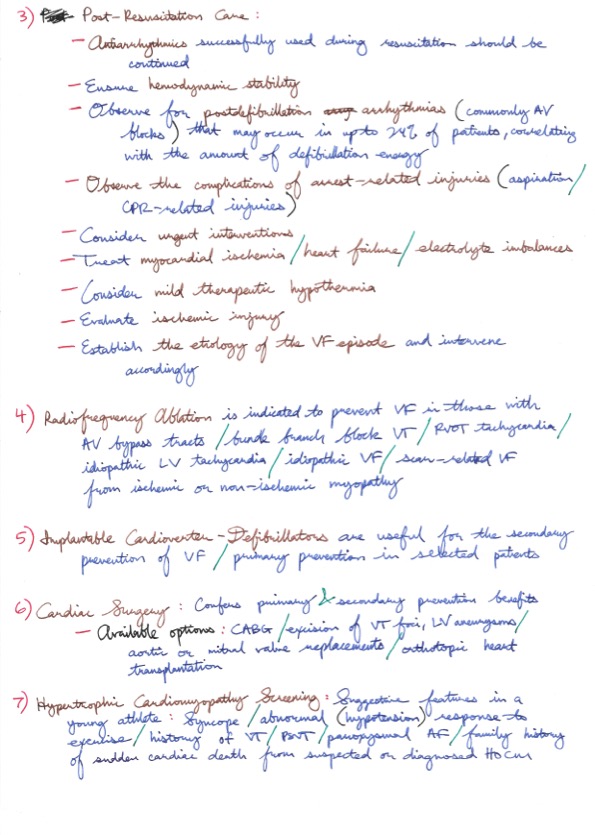 3) Post-Resuscitation Care :
- Antiarrhythmics successfully used during resuscitation should be
continued
- Ensure hemodynamic stability
- Observe for postdefibrillation arrhythmias (commonly AV
blocks) that may occur in up to 24% of patients, correlating
with the amount of defibrillation energy
- Observe the complications of arrest-related injuries (aspiration/
CPR-related injuries)
- Consider urgent interventions
- Treat myocardial ischemia / heart failure / electrolyte imbalances
- Consider mild therapeutic hypothermia
- Evaluate ischemic injury
- Establish the etiology of the VF episode and intervene
accordingly
4) Radiofrequency Ablation is indicated to prevent VF in those with
AV bypass tracts / bundle branch block VT / RVOT tachycardia /
idiopathic LV tachycardia / idiopathic VF / scar-related VF
from ischemic or non-ischemic myopathy
5) Implantable Cardioverter-Defibrillators are useful for the secondary
prevention of VF / primary prevention in selected patients
6) Cardiac Surgery : Confers primary & secondary prevention benefits
- Available options : CABG / excision of VT foci, LV aneurysms /
aortic or mitral valve replacements / orthotopic heart
transplantation
7) Hypertrophic Cardiomyopathy Screening : Suggestive features in a
young athlete : Syncope / abnormal (hypotension) response to
exercise / history of VT / PSVT / paroxysmal AF / family history
of sudden cardiac death from suspected or diagnosed HOCM